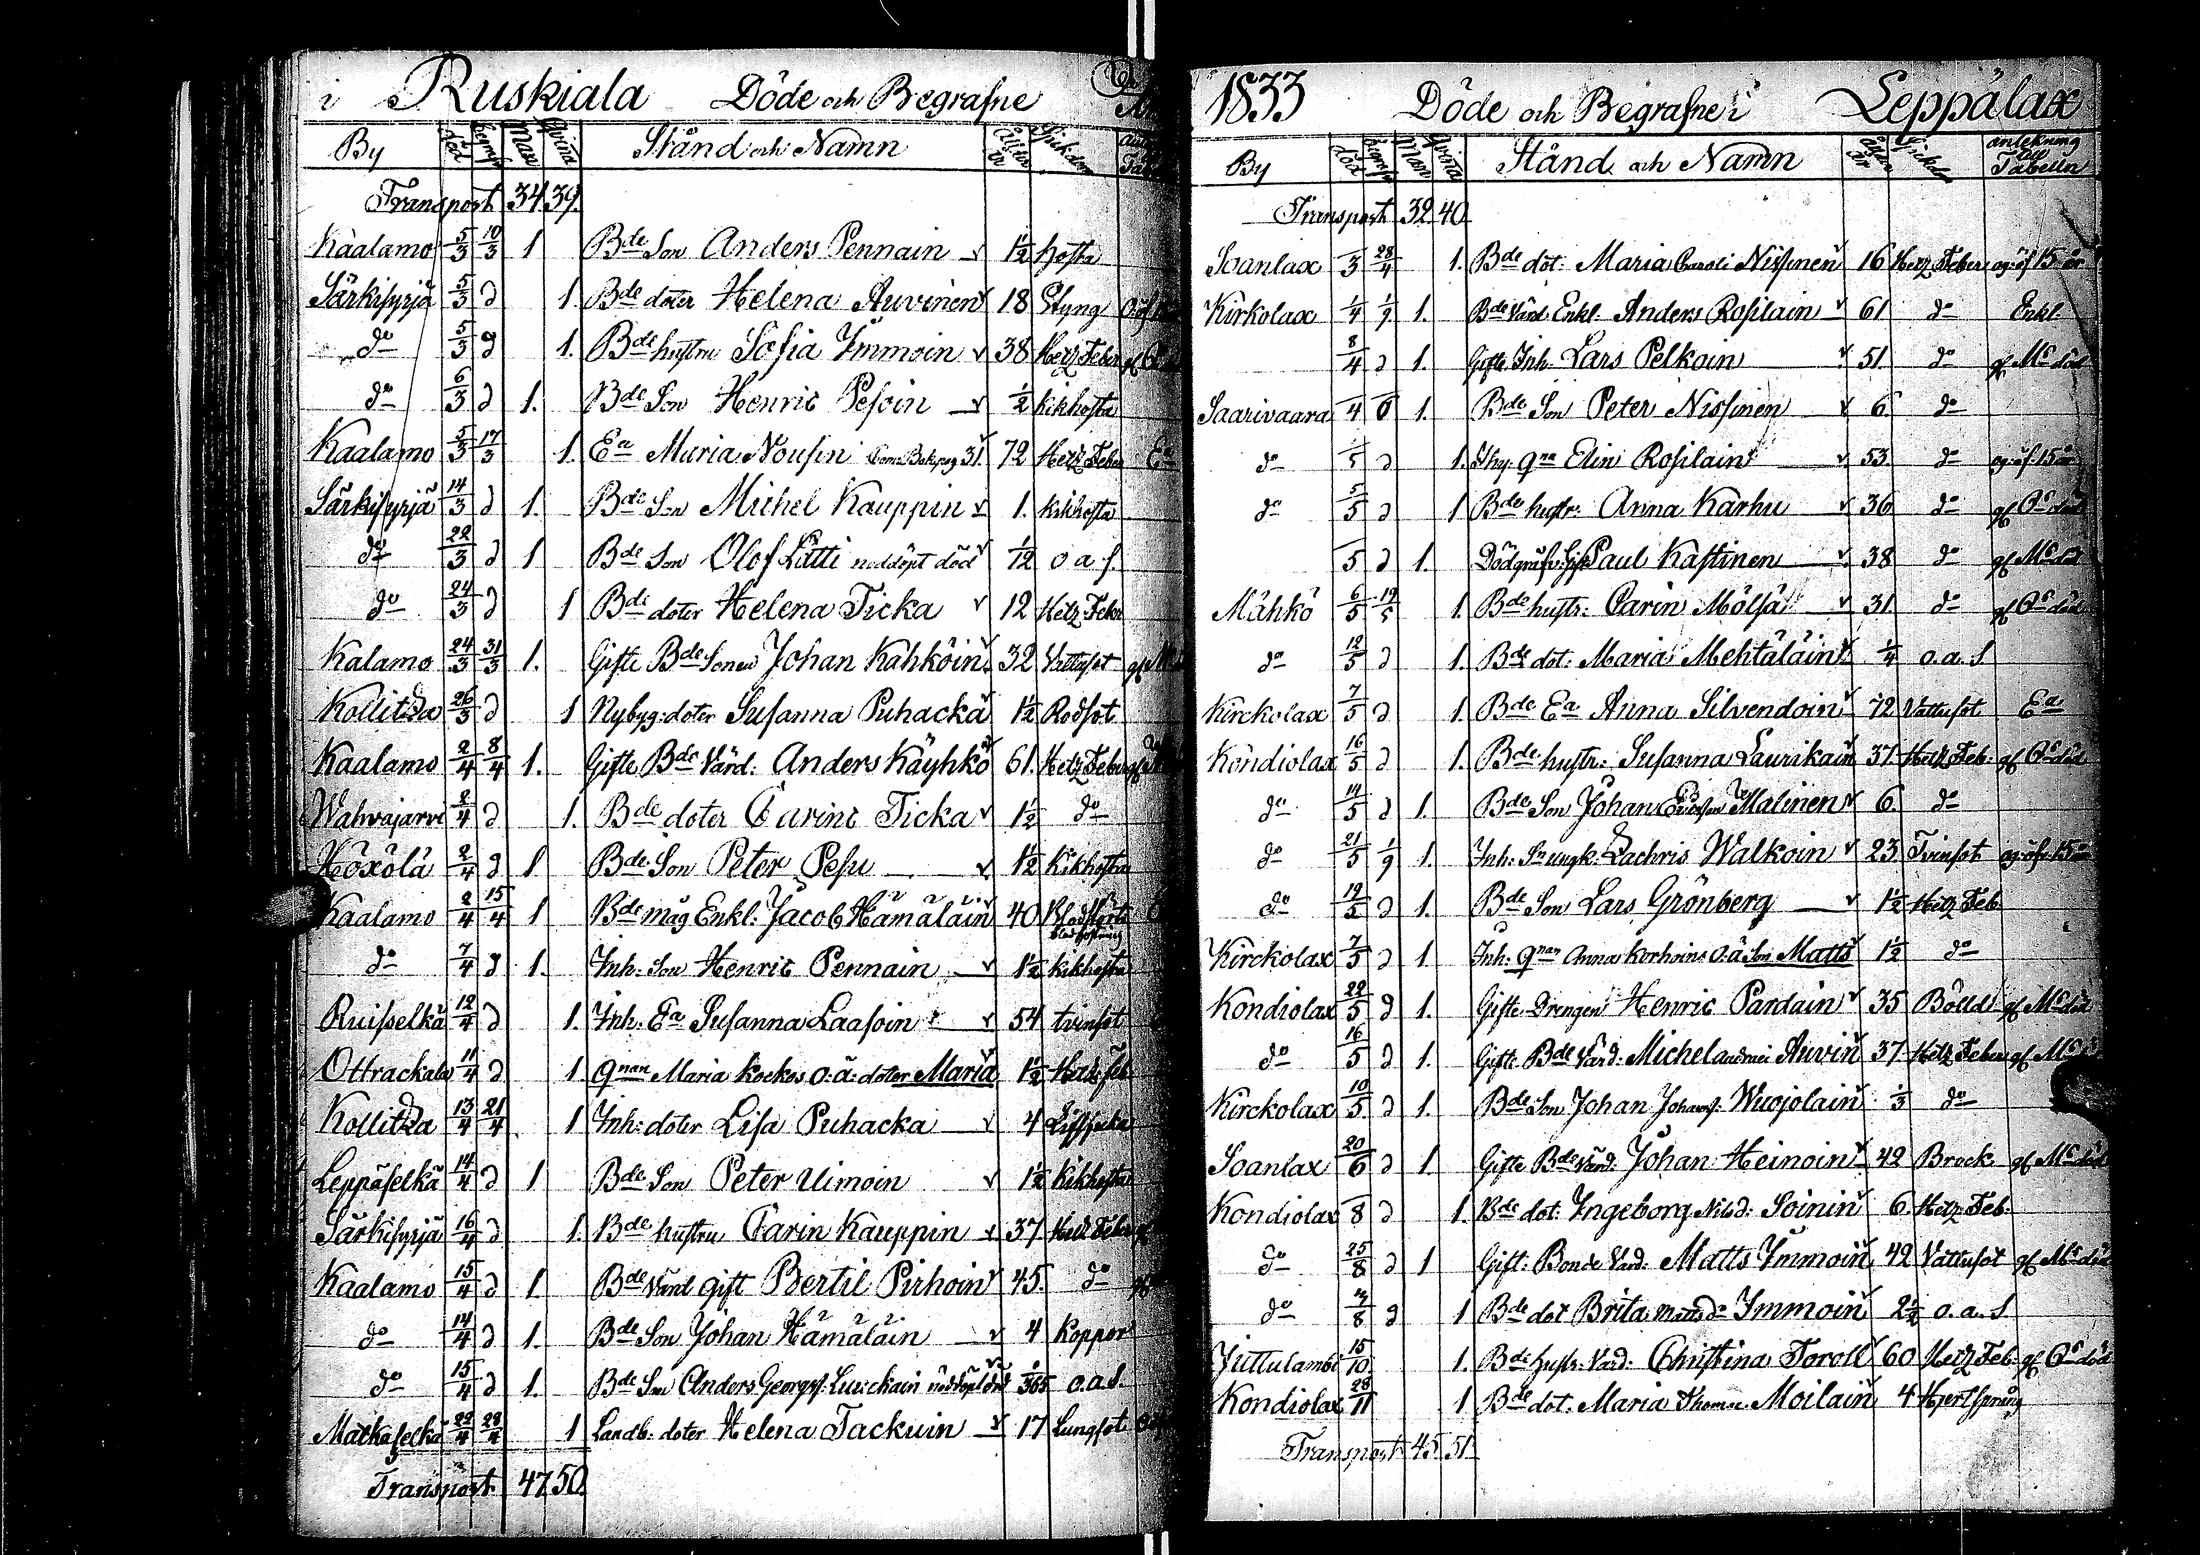 i Ruskiala Döde och Begrafne
By död begrafn Man Qvina Stånd och Namn Ålder år Sjukdom
Transport 34. 39.
Kaalamo 5/3 10/3 1 Bde Son Anders Pennain 1½ hosta
Särkisyrjä 5/3 d 1. Bde doter Helena Auvinen 18 Styng
do 5/3 d 1. Bde hustru Sofia Immoin 38 Hetz Feber
do 6/3 d 1. Bde Son Henric Pesoin ½ kikhosta
Kaalamo 5/3 17/3 1. Ea Maria Nousin 31. 72 Hetz Feber Ea
Särkisyrjä 14/3 d 1. Bde Son Michel Kauppin 1. kikhosta
do 22/3 d 1 Bde Son Olof Litti nöddöpt död 1/12 o a s.
do 24/3 d 1 Bde doter Helena Ticka 12 Hetz Feber
Kalamo 24/3 31/3 1. Gifte Bde Sonen Johan Kähköin 32 Vattusot
Kollitza 26/3 d 1 Nybyg: doter Susanna Puhacka 1½ Rödsot
Kaalamo 2/4 8/4 1. Gifte Bde Värd: Anders Käyhkö 61. Hetz Feber
Wahvajärvi 2/4 d 1. Bde doter Carinc Ticka 1½ do
Höxölä 2/4 d 1 Bde Son Peter Pesu 1½ Kikhosta
Kaalamo 2/4 15/4 1 Bde måg Enkl: Jacob Hämäläin 40
do 7/4 d 1. Inh: Son Henric Pennain 1½ kikhosta
Ruisselkä 12/4 d 1. Inh: Ea Susanna Laasoin 54 tvinsot
Ottrackala 11/4 d 1 qnan Maria Kockos o: ä: doter Maria 1½ Hetz feb
Kollitza 13/4 21/4 1 Inh: doter Lisa Puhacka 4
Leppäselkä 14/4 d 1 Bde Son Peter Uimoin 1½ Kikhosta
Särkisyrjä 16/4 d 1. Bde hustru Carin Kauppin 37. Hetz Feber
Kaalamo 15/4 d 1. Bde Värd gift Bertil Pirhoin 45. do
do 14/4 d 1. Bde Son Johan Hämäläin 4 Koppor
do 15/4 d 1. Bde Son Anders Georgs: Luickain nöddöpt död 1/365 o.a.s.
Matkaselkä 22/4 28/4 1 Landb: doter Helena Tackuin 17 Lungsot
Transport 47 50.
1833 Döde och Begrafne i Leppälax
By död begrafn Man Qvina Stånd och Namn ålder år Sjukd anlekning till Tabelln
Transport 32. 40.
Soanlax /3 28/4 1. Bde dot: Maria Caroli Nissinen 16 Hetz Feber og. öf 15 år
Kirkolax 1/4 1/9 1. Bde Värd Enkl. Anders Rosilain 61 do Enkl.
8/4 d 1. Gifte Inh: Lars Pelkoin 51. do gf Mc död
Saarivaara /4 6 1. Bde Son Peter Nissinen 6 do
do /5 d 1. qna Elin Rosilain 53. do og. öf. 15 år
do 5/5 d 1 Bde hustr: Anna Karhu 36 do gf Qc död
/5 d 1. Dödgräfv: Gift Paul Kastinen 38 do gf Mc död
Mähkö 6/5 19/5 1. Bde hustr: Carin Mölsä 31. do gf Qc död
do 12/5 d 1. Bde dot: Maria Mehtäläin ¼ o.a.s
Kirckolax 7/5 d 1. Bde Ea Anna Silvendoin 72 Vattusot Ea
Kondiolax 16/5 d 1. Bde hustr: Susanna Laurikain 37. Hetz Feb: gf Qc död
do 14/5 d 1. Bde Son Johan Ericsson Malinen 6. do
do 21/5 1/9 1. Inh: Sn ungk: Zachris Walkoin 23 Tvinsot og. öfr 15 år
do 19/5 d 1. Bde Son Lars Grönberg 1½ Hetz Feb
Kirckolax 7/5 d 1. Inh: qnan Anna Korhoins o: ä Son Matts 1½ do
Kondiolax 22/5 d 1. Gifte Drengen Henric Pardain 35 Bölld gf Mc död
do 16/5 d 1. Gifte Bde Värd: Michel Auvin 37 Hetz Feber gf Mc
Kirckolax 10/5 d 1. Bde Son Johan Johans: Wuojolain ⅓ do
Soanlax 20/6 d 1. Gifte Bde Värd: Johan Heinoin 42 Brock gf Mc död
Kondiolax /8 d 1. Bde dot: Ingeborg Nilsd: Soinin 6. Hetz Feb.
do 25/8 d 1 Gift: Bonde Värd: Matts Immoin 42 Vattusot gf Mc död
do 3/8 d 1 Bde dot Brita Matts dr Immoin 2½ o.a.s.
Jittulambi 15/10 1. Bde hustr: Värd: Christina Toroll 60 Hetz Feb. gf Qc död
Kondiolax 28/11 1 Bde dot: Maria Thomae Moilain 4 Hjertsprång
Transport 45. 51.